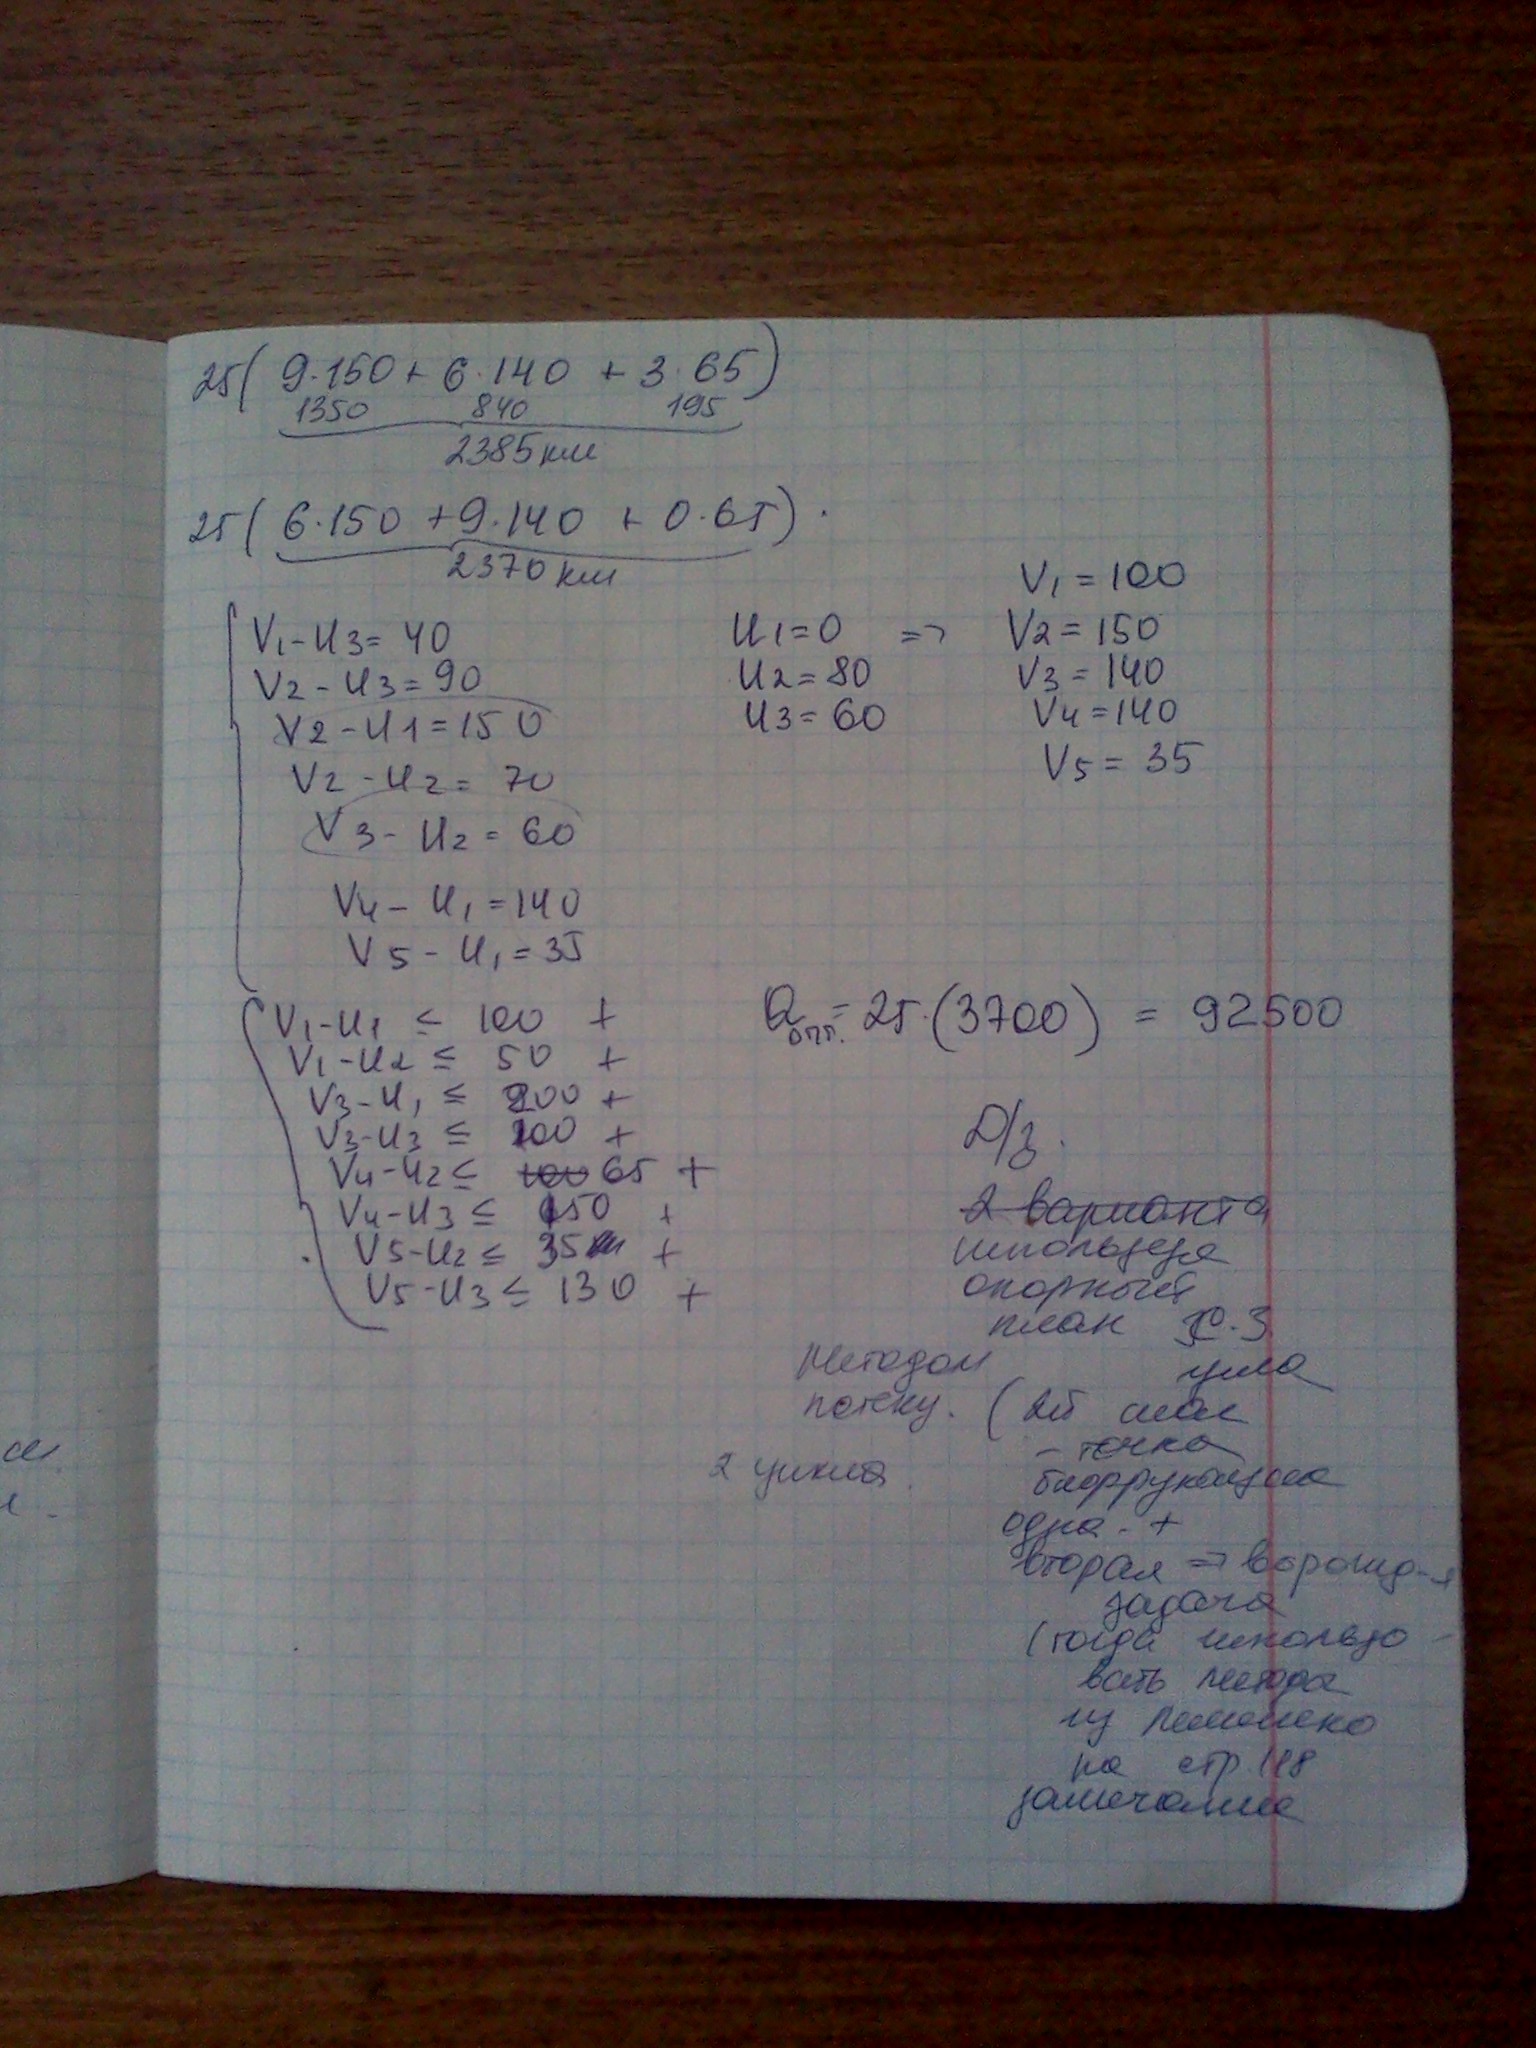 25(9·150+6·140+3·65)
1350 840 195
2385 км
25(6·150+9·140+0·65).
2370 км
V1-U3=40
V2-U3=90
V2-U1=150
V2-U2=70
V3-U2=60
V4-U1=140
V5-U1=35
U1=0 =>
U2=80
U3=60
V1=100
V2=150
V3=140
V4=140
V5=35
V1-U1 ≤ 100 +
V1-U2 ≤ 50 +
V3-U1 ≤ 200 +
V3-U3 ≤ 100 +
V4-U2 ≤ 100 65 +
V4-U3 ≤ 150 +
V5-U2 ≤ 35 +
V5-U3 ≤ 130 +
Qопт.=25·(3700) = 92500
Д/з.
2 варианта
используя
опорный
план
Методом
потенц.
2 цикла.
(2й
- точка
бифрукации
одна - +
вторая => вырожд-я
задача
(тогда использо-
вать метода
из
на стр. 188
замечание